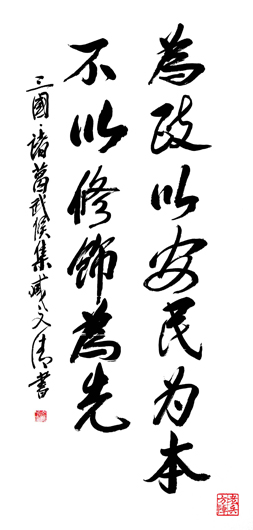 為政以安民为本
不以修飾為先
三國·諸葛武侯集臧文清書